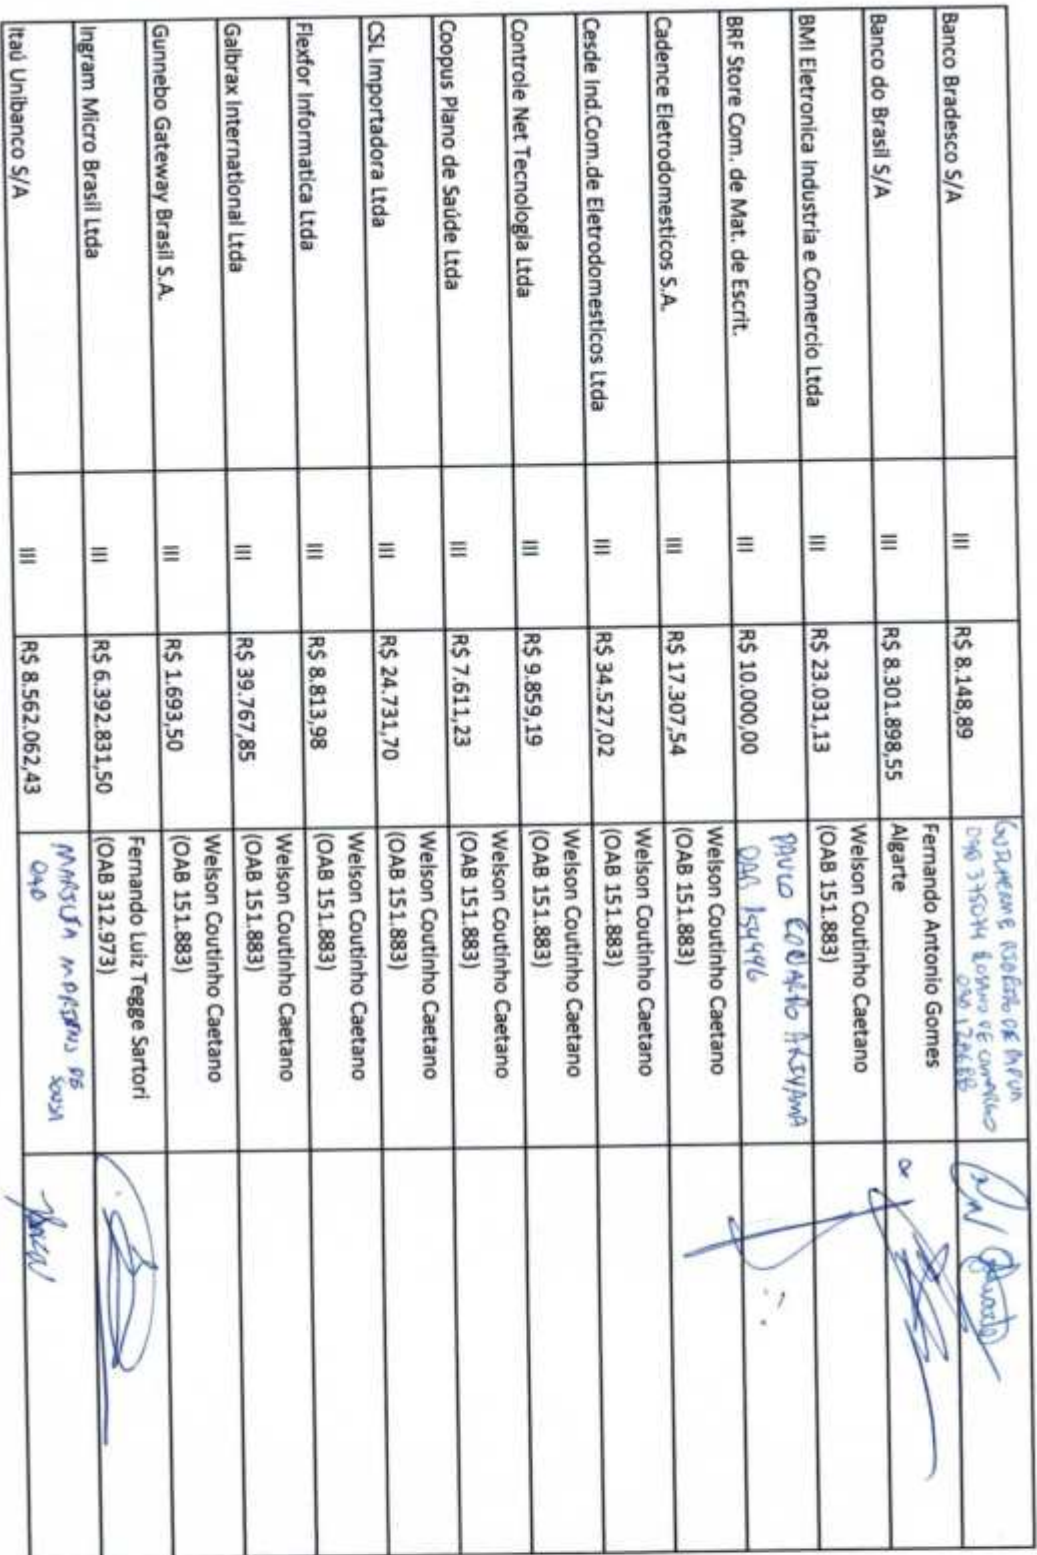 Banco Bradesco S/A III R$ 8.148,89 GUILHERME RIBEIRO DE
OAB 375074 ROSANO DE CAMARGO
OAB 128688
Banco do Brasil S/A III R$ 8.301.898,55 Fernando Antonio Gomes
Algarte
BMI Eletronica Industria e Comercio Ltda III R$ 23.031,13 Welson Coutinho Caetano
(OAB 151.883)
BRF Store Com. de Mat. de Escrit. III R$ 10.000,00 PAULO
OAB 154496
Cadence Eletrodomesticos S.A. III R$ 17.307,54 Welson Coutinho Caetano
(OAB 151.883)
Cesde Ind.Com.de Eletrodomesticos Ltda III R$ 34.527,02 Welson Coutinho Caetano
(OAB 151.883)
Controle Net Tecnologia Ltda III R$ 9.859,19 Welson Coutinho Caetano
(OAB 151.883)
Coopus Plano de Saúde Ltda III R$ 7.611,23 Welson Coutinho Caetano
(OAB 151.883)
CSL Importadora Ltda III R$ 24.731,70 Welson Coutinho Caetano
(OAB 151.883)
Flexfor Informatica Ltda III R$ 8.813,98 Welson Coutinho Caetano
(OAB 151.883)
Galbrax International Ltda III R$ 39.767,85 Welson Coutinho Caetano
(OAB 151.883)
Gunnebo Gateway Brasil S.A. III R$ 1.693,50 Welson Coutinho Caetano
(OAB 151.883)
Ingram Micro Brasil Ltda III R$ 6.392.831,50 Fernando Luiz Tegge Sartori
(OAB 312.973)
Itaú Unibanco S/A III R$ 8.562.062,43 MARSIÉA MARTINS DE
SOUSA
OAB